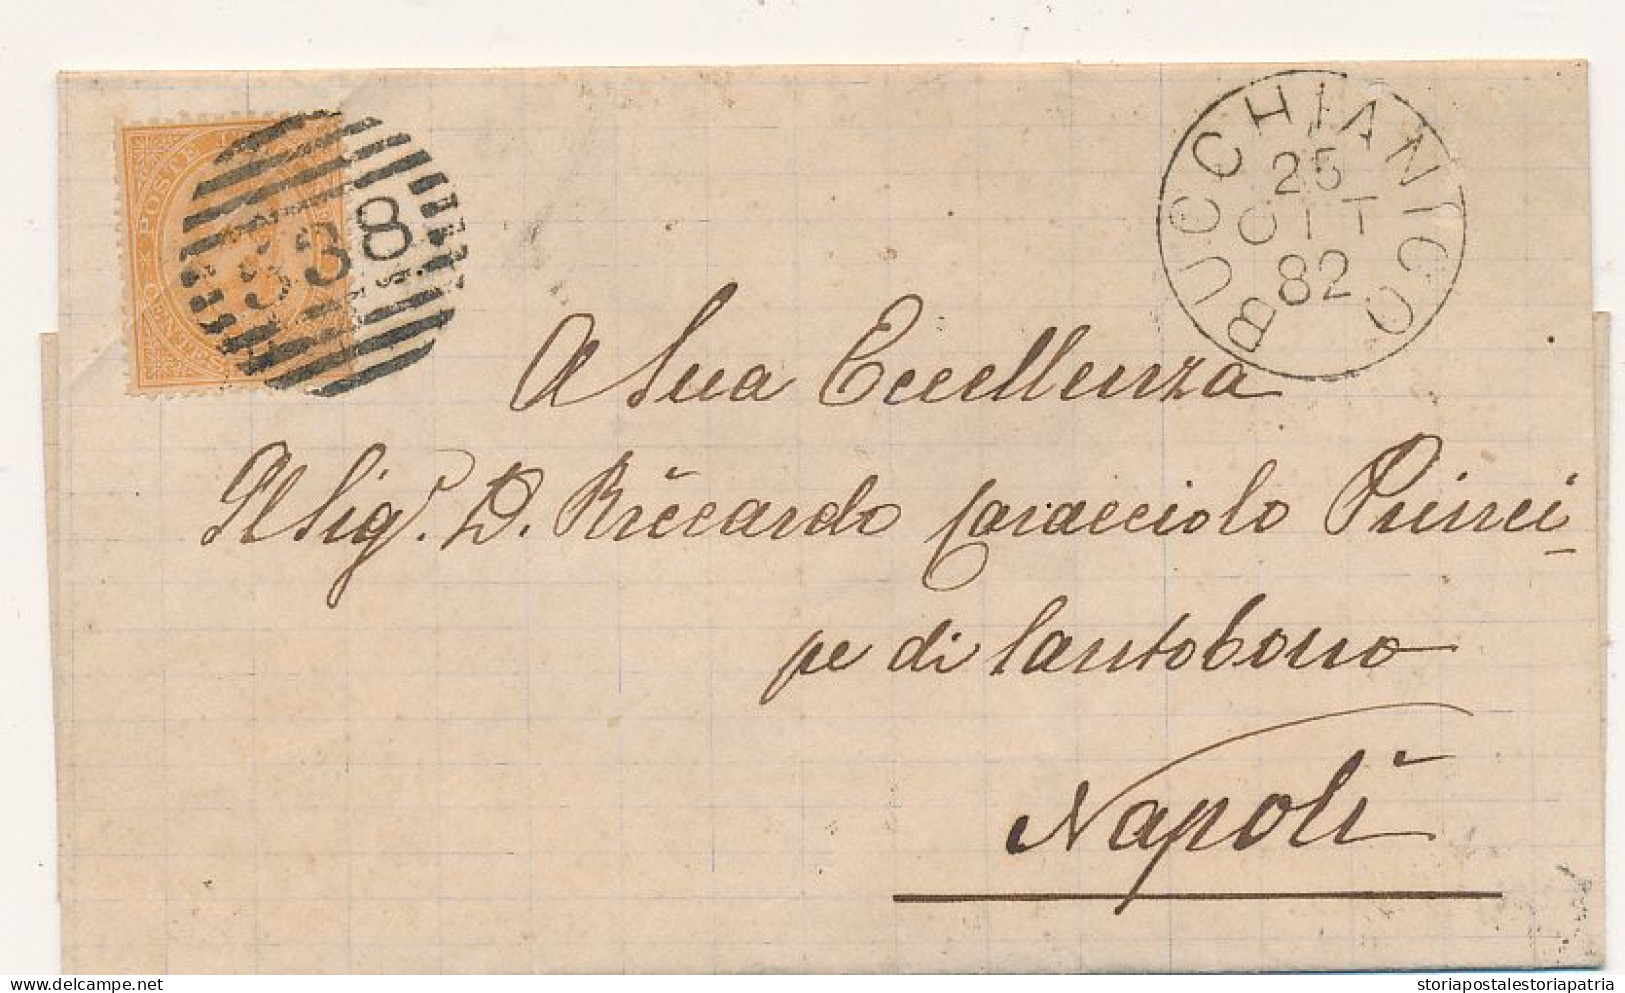 POSTE
338
BUCCHIANICO
25
OTT
82
A Sua Eccellenza
Il Sig.r D. Riccardo Caracciolo Princi
pe di Santobono
Napoli
delcampe.net
storiapostalestoriapatria